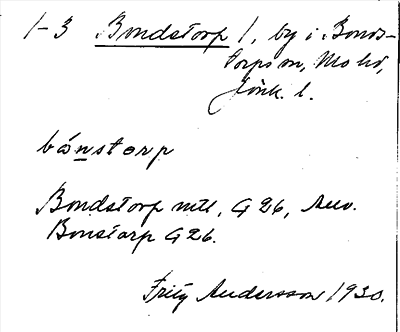 1-3 Bondstorp 1, by i Bonds-
torps sn, Mo hd,
Jönk. l.
bónstorp
Bondstorp mtl, G 26, Auv.
Bonstorp G26.
Fritz Andersson 1930.